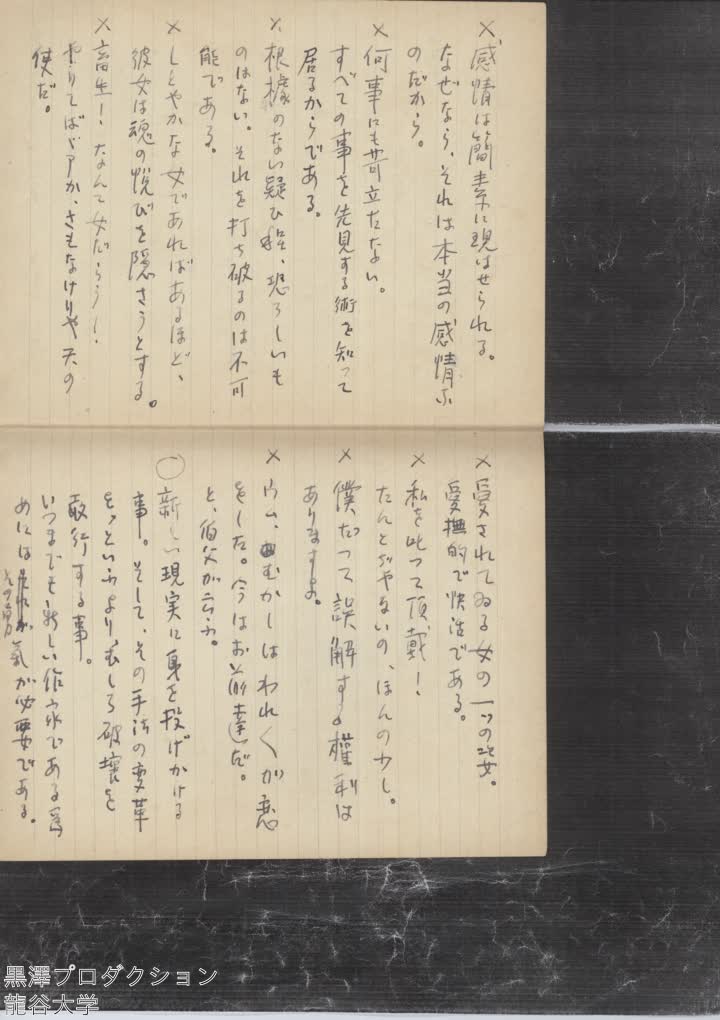 ×感情は簡素に現はせられる。
なぜなら、それは本当の感情ぶ
のだから。
×何事にも苛立たない。
すべての事を先見する術を知って
居るからである。
×根據のない疑ひ程、恐ろしいも
のはない。それを打ち破るのは不可
能である。
×しとやかな女であればあるほど、
彼女は魂の悦びを隠さうとする。
×畜生!なんて女だらう!
やりてばゞアか、さもなけりや天の
使だ。
×愛されてゐる女の一つの
愛撫的で快活である。
×私を叱って頂戴!
たんとぢやないの、ほんの少し。
×僕だって誤解する權利は
ありますよ。
×ウム、むかしはわれ〱が恋
をした。今はお前達だ。
と、伯父が云ふ。
○新しい現実に身を投げかける
事。そして、その手法の変革
をといふより、むしろ破壊を
敢行する事。
いつまでも新しい作家である為
めにはその勇氣が必要である。
黒澤プロダクション
龍谷大学